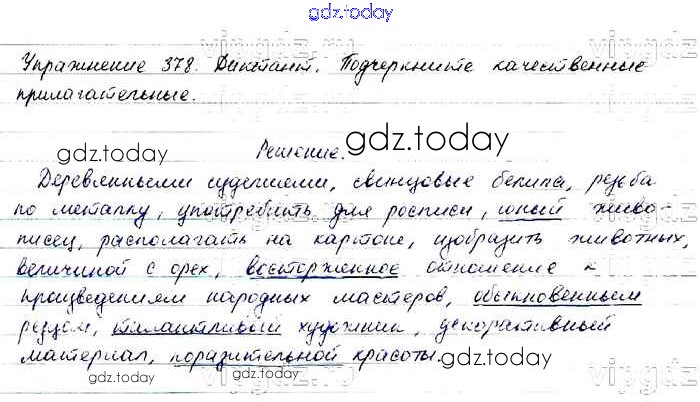 gdz.today
Упражнение 378. Диктант. Подчеркните качественные
прилагательные.
gdz.today
Решение.
gdz.today
Деревянными изделиями, свинцовые белила, резьба
по металлу, употребить для росписи, юный живо-
писец, располагать на картоне, изобразить животных,
величиной с орех, восторженное отношение к
произведениям народных мастеров, обыкновенным
резцом, талантливый художник, декоративный
материал, поразительной красоты.
gdz.today
gdz.today